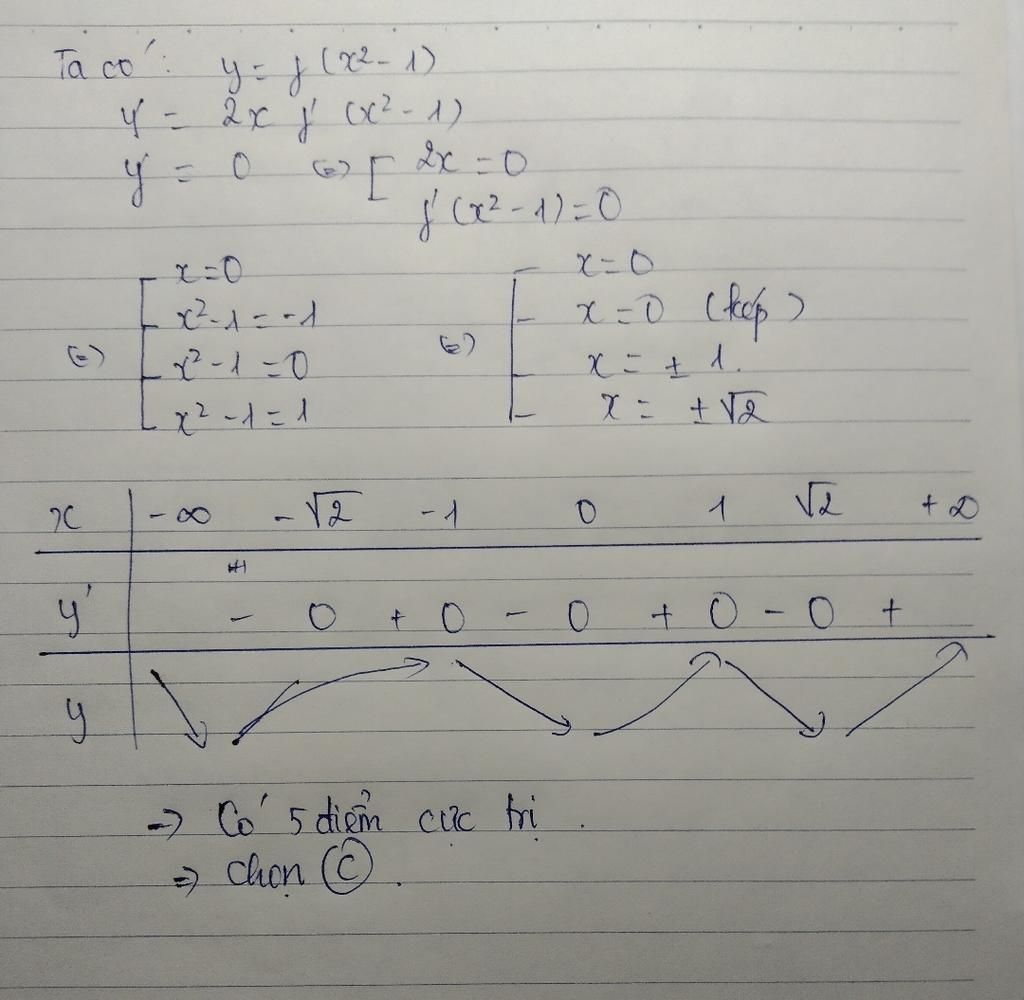 Ta có: y = f(x² - 1)
y' = 2x f'(x² - 1)
y' = 0 (=) [ 2x = 0
f'(x² - 1) = 0
x = 0
x² - 1 = -1
(=) x² - 1 = 0
x² - 1 = 1
x = 0
x = 0 (kép)
(=) x = ± 1.
x = ± √2
x -∞ -√2 -1 0 1 √2 +∞
y' - 0 + 0 - 0 + 0 - 0 +
y
→ Có 5 điểm cực trị.
⇒ Chọn C.